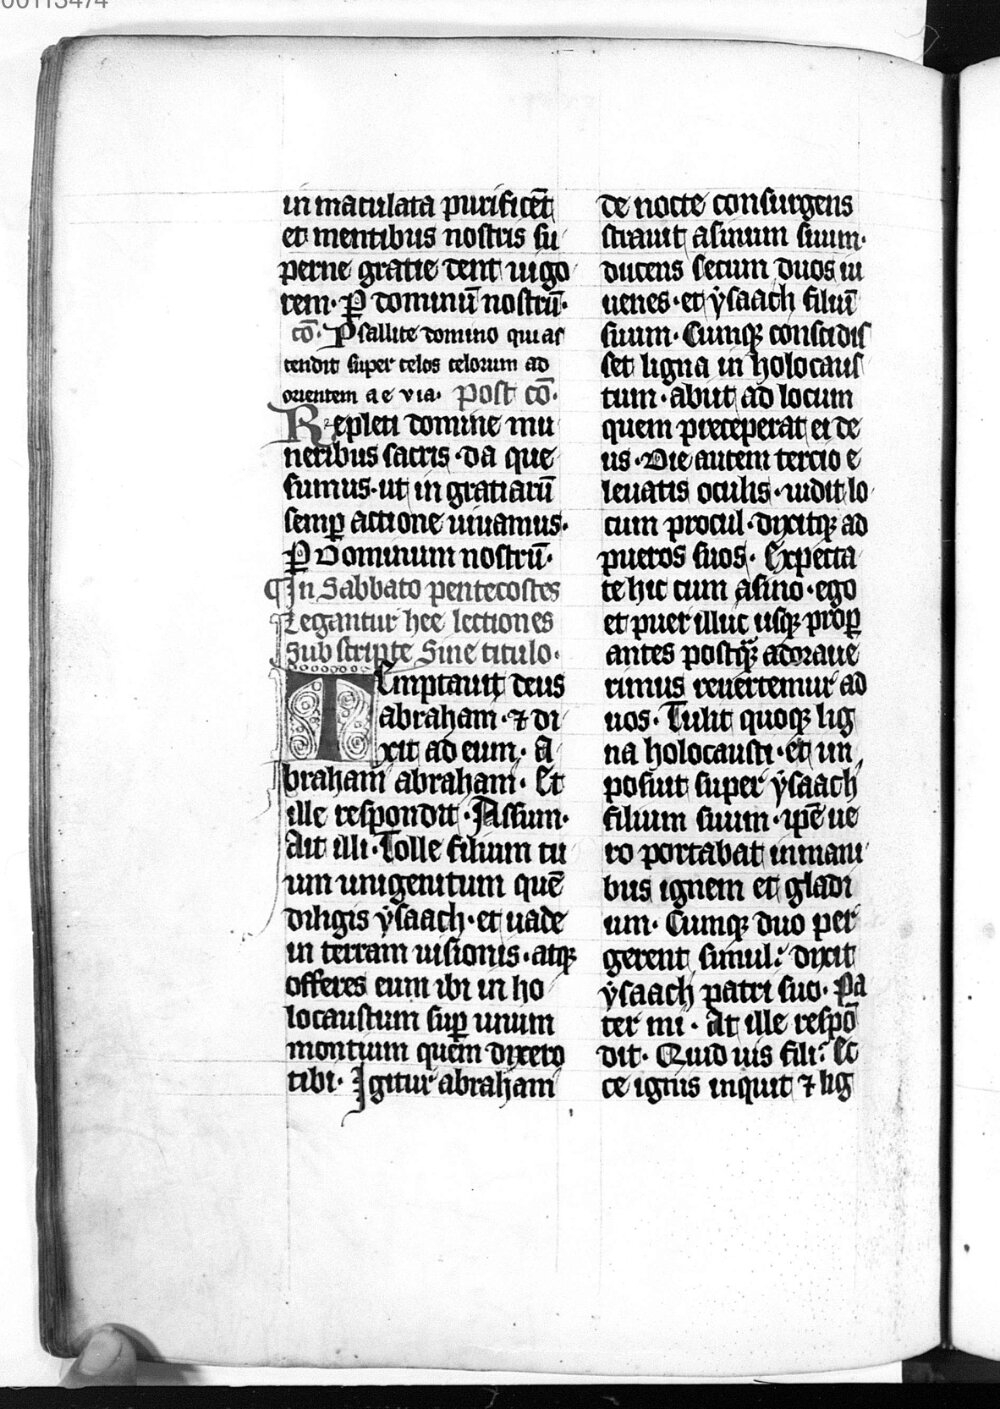 00113474
in maculata purificēt
et mentibus nostris su
perne gratie dent uigo
rem· P dominū nostrū·
cō· Psallite domino qui as
cendit super celos celorum ad
orientem a e v i a· post cō·
Repleti domine mu
neribus sacris · da que
sumus · ut in gratiarū
semꝑ actione uiuamus·
P Dominum nostrū·
¶ In Sabbato pentecostes
Legantur hee lectiones
Subscripte Sine titulo·
Temptauit deus
abraham · ⁊ di
xit ad eum · A
braham abraham · Et
ille respondit · Assum·
Ait illi · Tolle filium tu
um unigenitum quē
diligis ẏsaach · et uade
in terram uisionis · atqꝫ
offeres eum ibi in ho
locaustum suꝑ unum
montium quem dixero
tibi · Igitur abraham
de nocte consurgens
strauit asinum suum·
ducens secum duos iu
uenes · et ẏsaach filiū
suum · Cumqꝫ conscidis
set ligna in holocaus
tum · abiit ad locum
quem preceperat ei de
us · Die autem tercio e
leuatis oculis · uidit lo
cum procul · dixitqꝫ ad
pueros suos · Expecta
te hic cum asino · ego
et puer illuc usqꝫ proꝑ
antes postqͣꝫ adoraue
rimus reuertemur ad
uos · Tulit quoqꝫ lig
na holocausti · et im
posuit super ẏsaach
filium suum · ip̄e ue
ro portabat in mani
bus ignem et gladi
um · Cumqꝫ duo per
gerent simul : dixit
ẏsaach patri suo · Pa
ter mi · At ille respō
dit · Quid uis fili? Ec
ce ignis inquit ⁊ lig